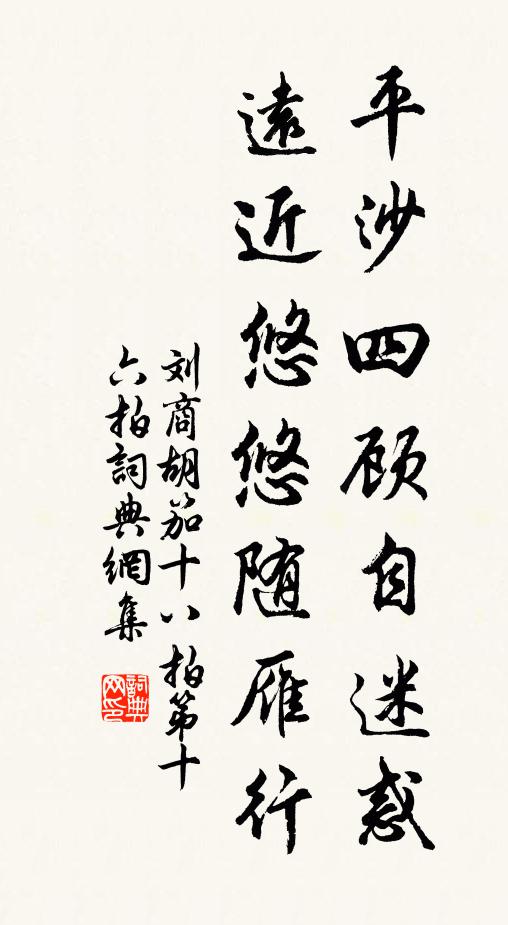 平沙四顾自迷惑
遠近悠悠随雁行
刘商胡笳十八拍第十
六拍詞典網集
詞典网印